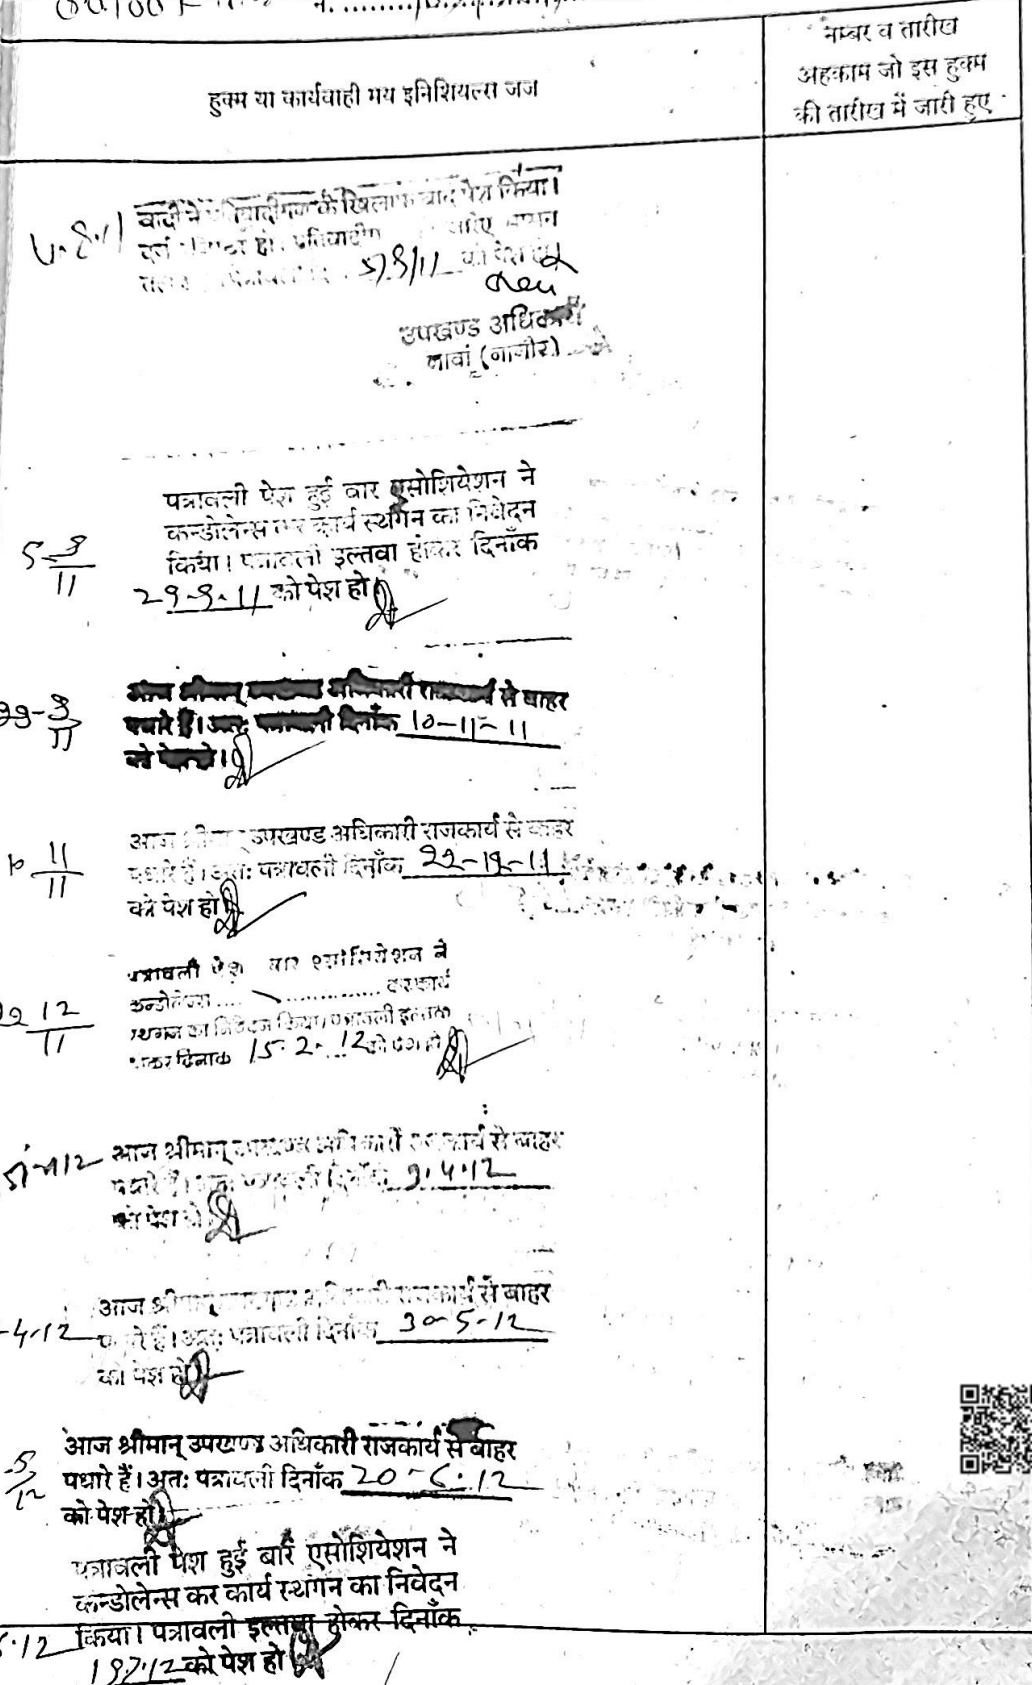 हुक्म या कार्यवाही मय इनिशियल्स जज
नम्बर व तारीख
अहकाम जो इस हुक्म
की तारीख में जारी हुए
वादी ने के खिलाफ वाद पेश किया।
5/9/11 को पेश हो
उपखण्ड अधिकारी
नावां (नागौर)
5-9/11
पत्रावली पेश हुई बार एसोशियेशन ने
कन्डोलेन्स कर कार्य स्थगन का निवेदन
किया। पत्रावली इल्तवा होकर दिनाँक
29-9-11 को पेश हो।
29-9/11
आज श्रीमान् उपखण्ड अधिकारी राजकार्य से बाहर
पधारे हैं। अतः पत्रावली दिनाँक 10-11-11
को पेश हो।
10 11/11
आज श्रीमान् उपखण्ड अधिकारी राजकार्य से बाहर
पधारे हैं। अतः पत्रावली दिनाँक 22-12-11
को पेश हो।
12/11
पत्रावली पेश बार एसोसियेशन ने
कन्डोलेन्स .... कर कार्य
स्थगन का निवेदन किया। पत्रावली इल्तवा
होकर दिनाक 15.2.12 को पेश हो
आज श्रीमान् उपखण्ड अधिकारी राजकार्य से बाहर
पधारे हैं। अतः पत्रावली दिनाँक 9.4.12
को पेश हो
-4-12
आज श्रीमान् उपखण्ड अधिकारी राजकार्य से बाहर
पधारे हैं। अतः पत्रावली दिनाँक 30-5-12
को पेश हो
5/12
आज श्रीमान् उपखण्ड अधिकारी राजकार्य से बाहर
पधारे हैं। अतः पत्रावली दिनाँक 20-6.12
को पेश हो।
पत्रावली पेश हुई बार एसोशियेशन ने
कन्डोलेन्स कर कार्य स्थगन का निवेदन
किया। पत्रावली इल्तवा होकर दिनाँक
19.7.12 को पेश हो